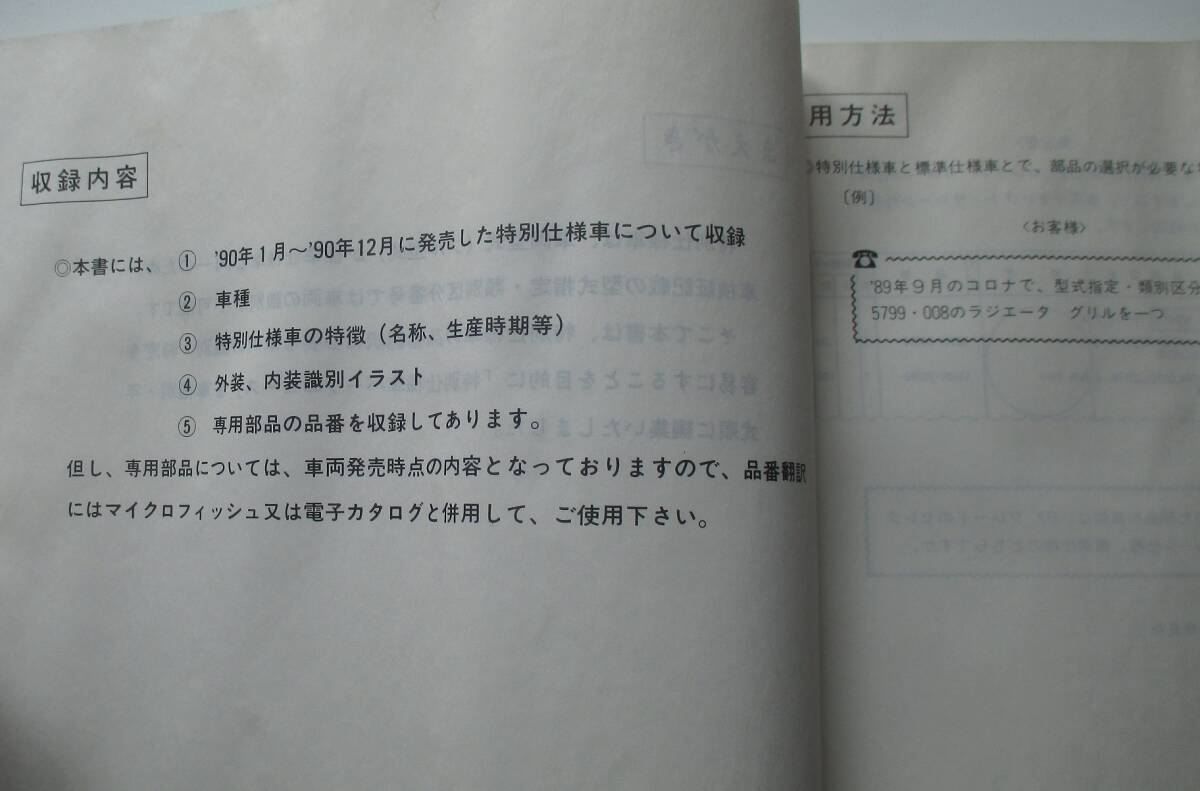 収録内容
◎本書には、 ① '90年1月～'90年12月に発売した特別仕様車について収録
② 車種
③ 特別仕様車の特徴（名称、生産時期等）
④ 外装、内装識別イラスト
⑤ 専用部品の品番を収録してあります。
但し、専用部品については、車両発売時点の内容となっておりますので、品番翻訳
にはマイクロフィッシュ又は電子カタログと併用して、ご使用下さい。
用方法
特別仕様車と標準仕様車とで、部品の選択が必要な
〔例〕
〈お客様〉
'89年9月のコロナで、型式指定・類別区分
5799・008のラジエータ グリルを一つ